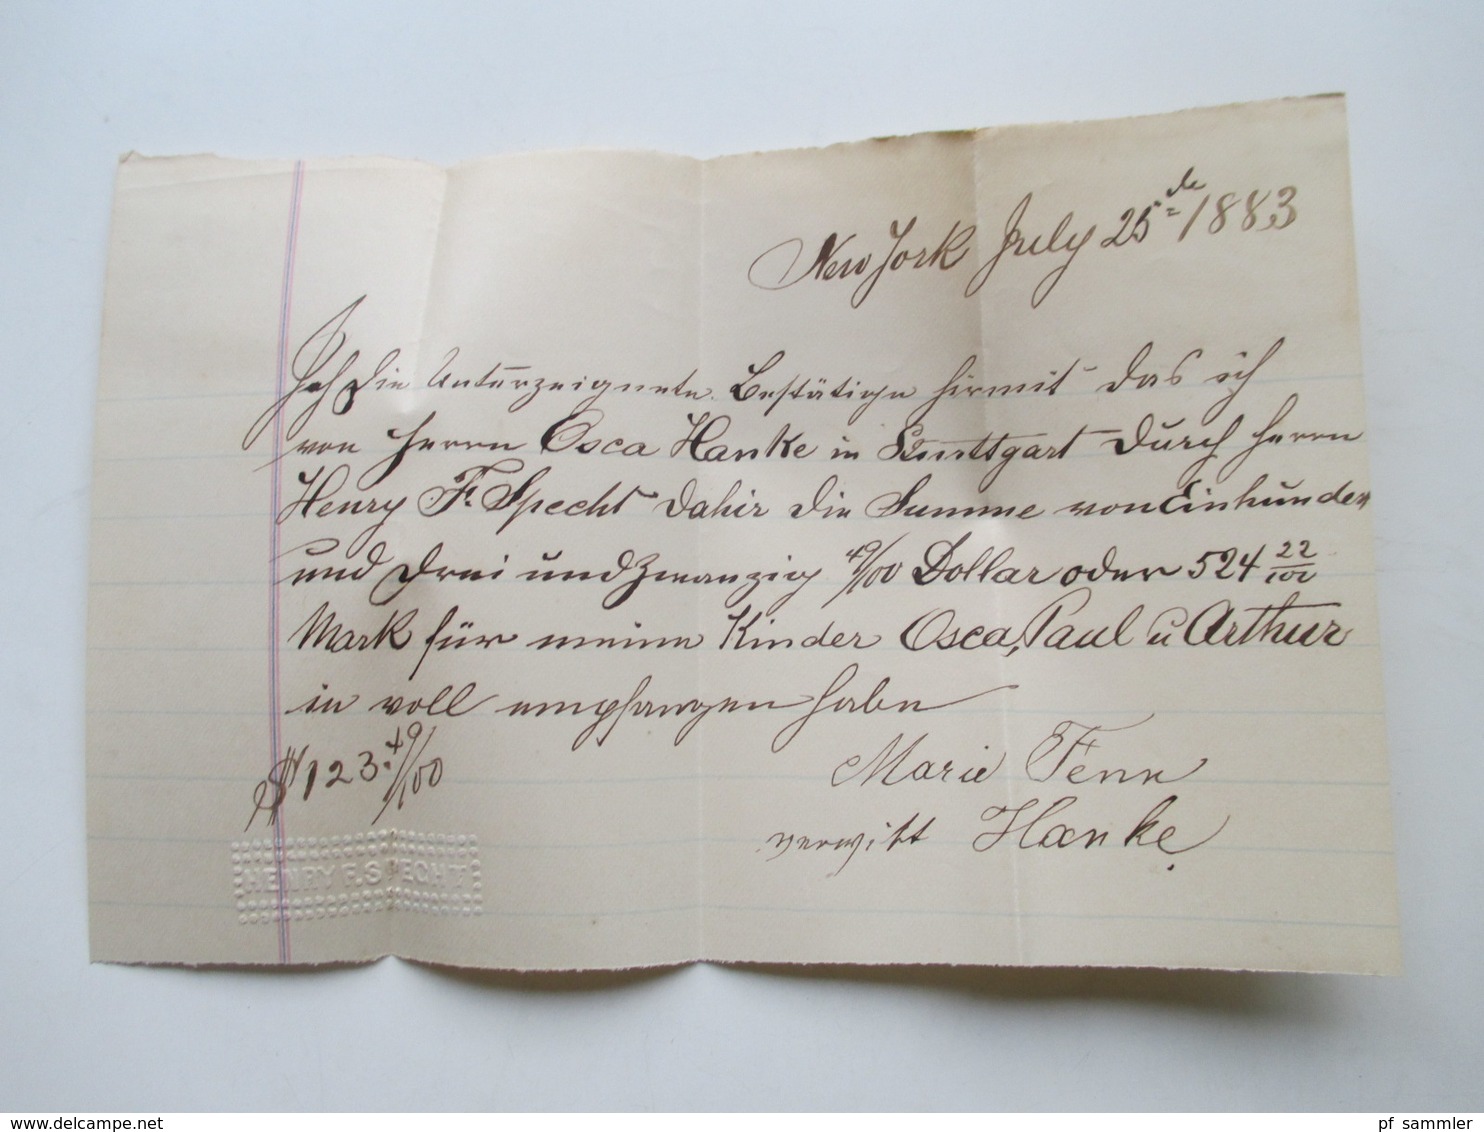 New York July 25te 1883
Ich die Unterzeignete Bestätige hirmit das ich
von Herrn Osca Hanke in Stuttgart durch Herrn
Henry F. Specht dahir die Summe von Einhundert
und drei und Zwanzig 40/100 Dollar oder 524 22/100
Mark für meine Kinder Osca, Paul u Arthur
in voll empfangen habe
$123.40/100
Marie Fenn
verwitt Hanke.
HENRY F. SPECHT
www.delcampe.net
pf_sammler